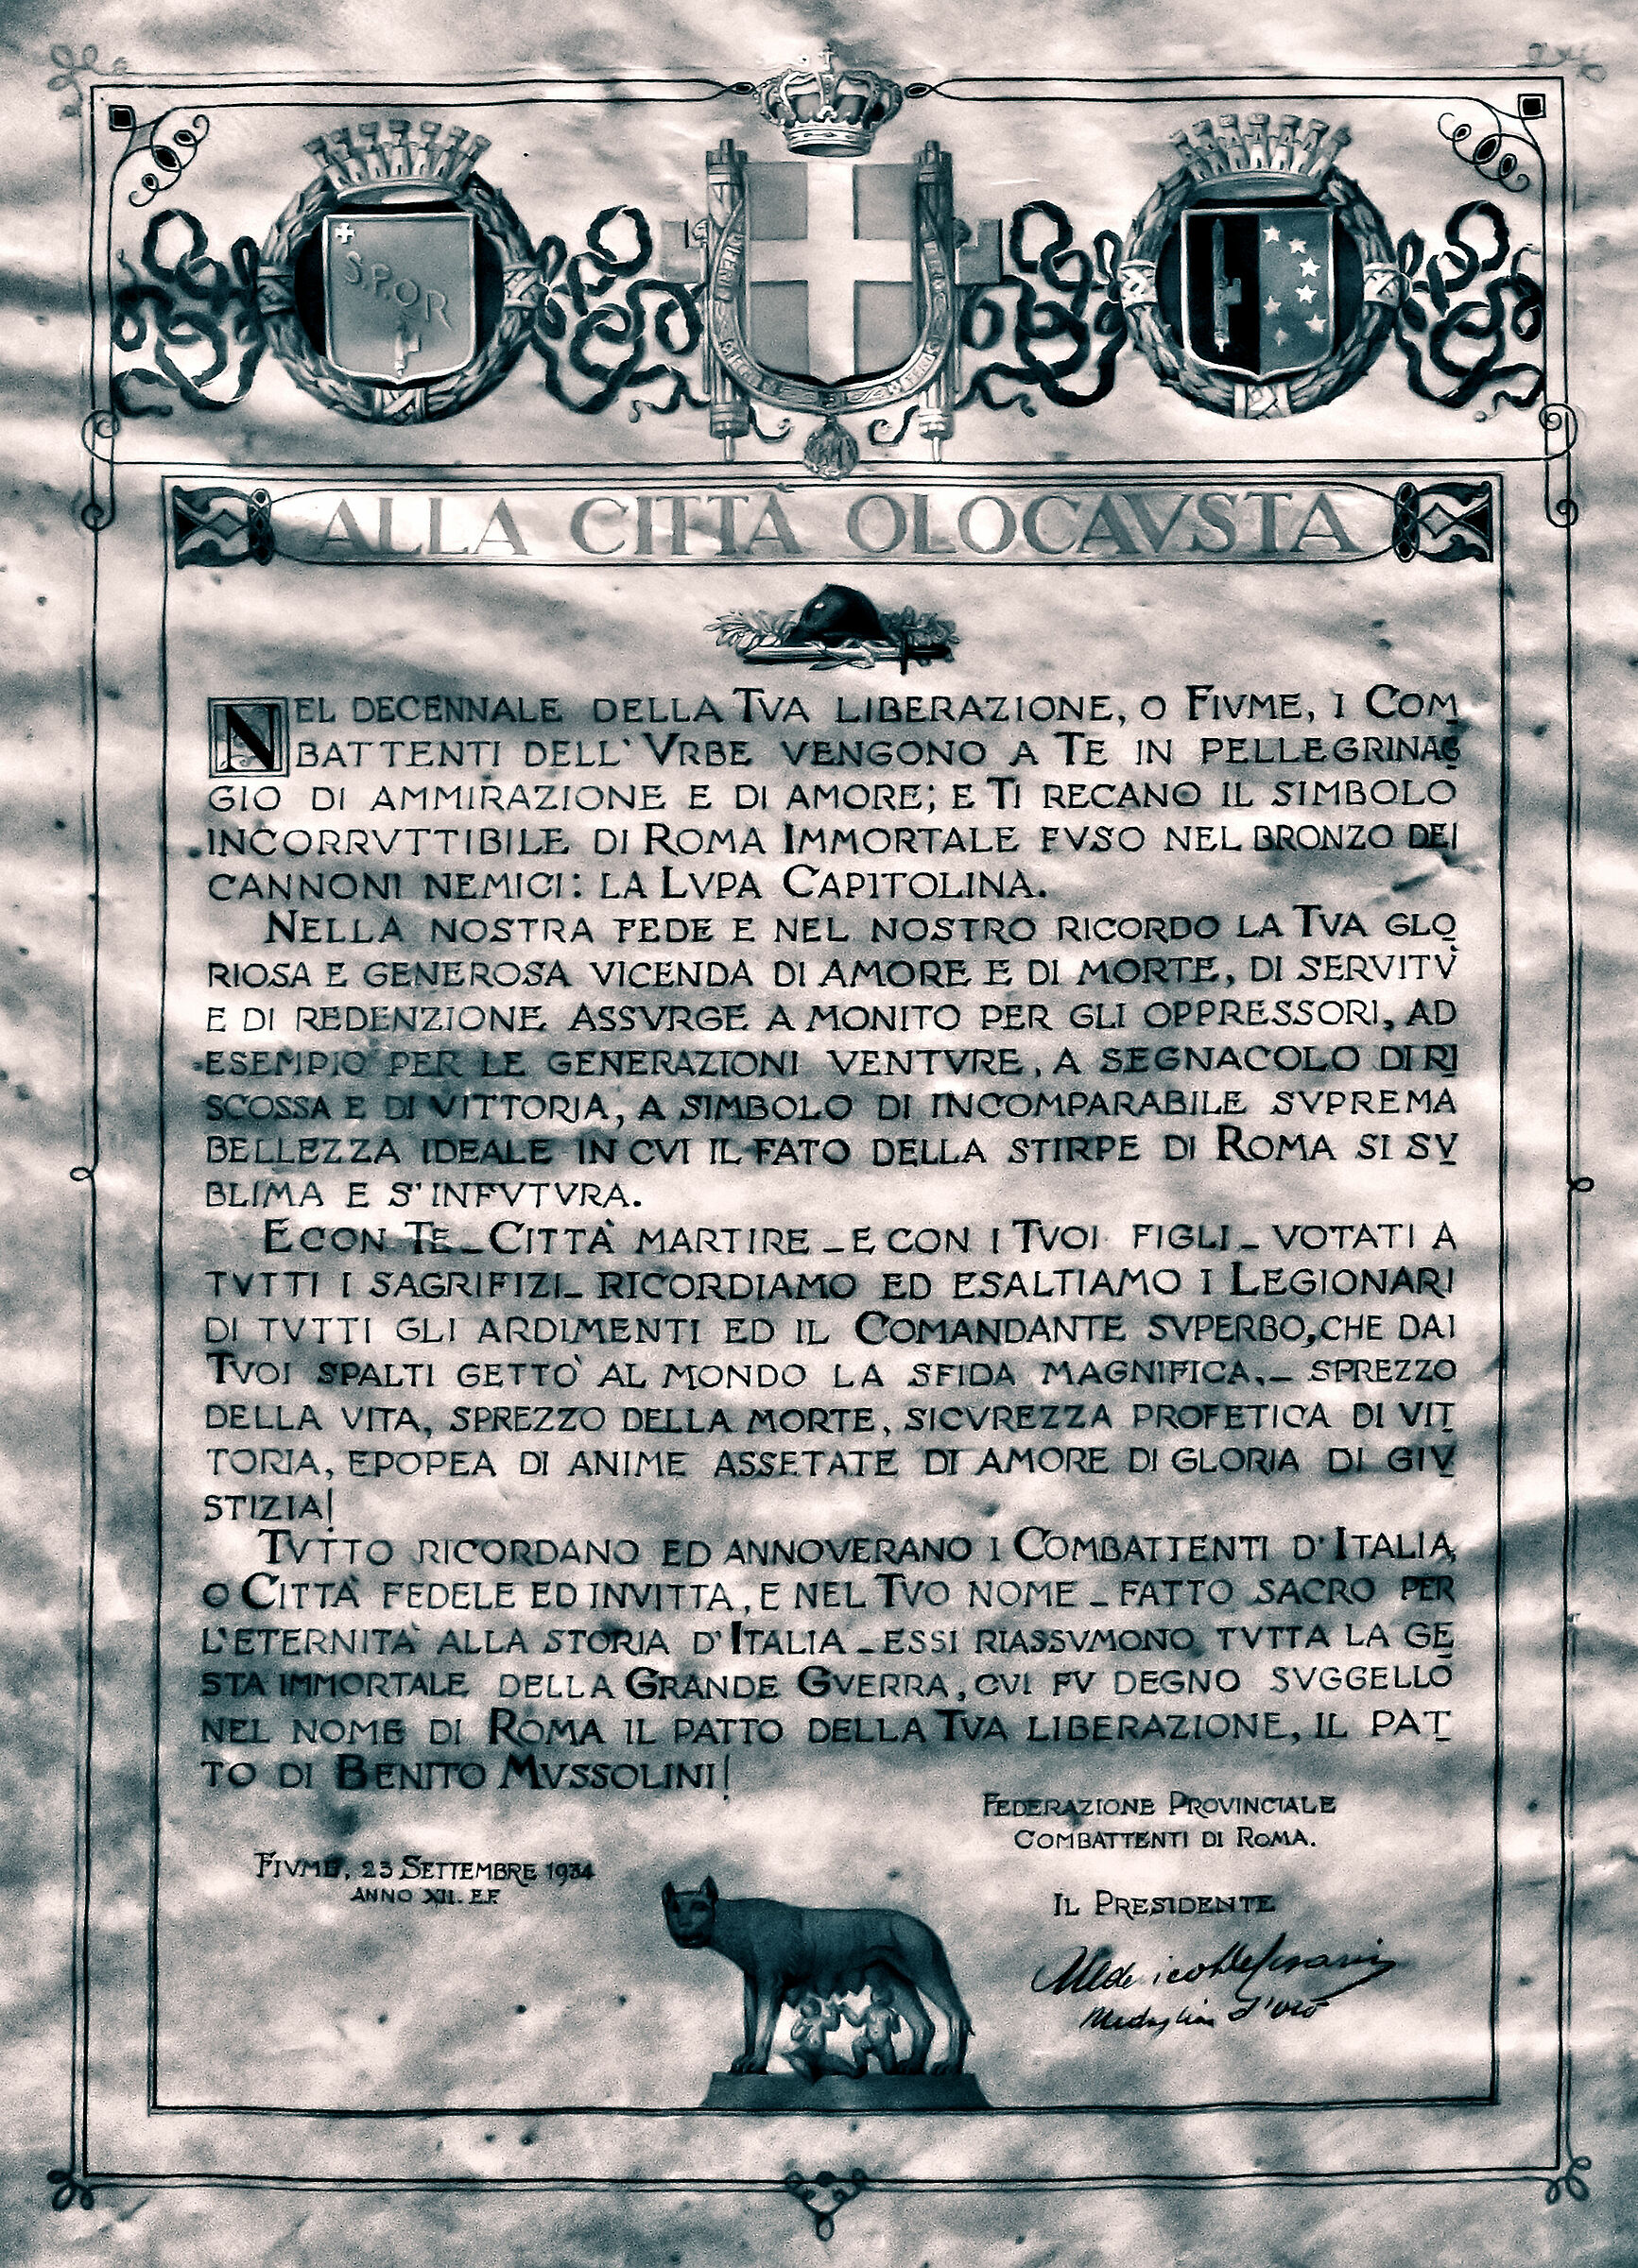 S.P.Q.R
ALLA CITTÀ OLOCAVSTA
NEL DECENNALE DELLA TVA LIBERAZIONE, O FIVME, I COM
BATTENTI DELL'VRBE VENGONO A TE IN PELLEGRINAG
GIO DI AMMIRAZIONE E DI AMORE; E TI RECANO IL SIMBOLO
INCORRVTTIBILE DI ROMA IMMORTALE FVSO NEL BRONZO DEI
CANNONI NEMICI: LA LVPA CAPITOLINA.
NELLA NOSTRA FEDE E NEL NOSTRO RICORDO LA TVA GLO
RIOSA E GENEROSA VICENDA DI AMORE E DI MORTE, DI SERVITV̀
E DI REDENZIONE ASSVRGE A MONITO PER GLI OPPRESSORI, AD
ESEMPIO PER LE GENERAZIONI VENTVRE, A SEGNACOLO DI RI
SCOSSA E DI VITTORIA, A SIMBOLO DI INCOMPARABILE SVPREMA
BELLEZZA IDEALE IN CVI IL FATO DELLA STIRPE DI ROMA SI SV
BLIMA E S'INFVTVRA.
E CON TE _ CITTÀ MARTIRE _ E CON I TVOI FIGLI _ VOTATI A
TVTTI I SAGRIFIZI _ RICORDIAMO ED ESALTIAMO I LEGIONARI
DI TVTTI GLI ARDIMENTI ED IL COMANDANTE SVPERBO, CHE DAI
TVOI SPALTI GETTÒ AL MONDO LA SFIDA MAGNIFICA, _ SPREZZO
DELLA VITA, SPREZZO DELLA MORTE, SICVREZZA PROFETICA DI VIT
TORIA, EPOPEA DI ANIME ASSETATE DI AMORE DI GLORIA DI GIV
STIZIA!
TVTTO RICORDANO ED ANNOVERANO I COMBATTENTI D'ITALIA,
O CITTÀ FEDELE ED INVITTA, E NEL TVO NOME _ FATTO SACRO PER
L'ETERNITÀ ALLA STORIA D'ITALIA _ ESSI RIASSVMONO TVTTA LA GE
STA IMMORTALE DELLA GRANDE GVERRA, CVI FV DEGNO SVGGELLO
NEL NOME DI ROMA IL PATTO DELLA TVA LIBERAZIONE, IL PAT
TO DI BENITO MVSSOLINI!
FEDERAZIONE PROVINCIALE
COMBATTENTI DI ROMA.
FIVME, 23 SETTEMBRE 1934
ANNO XII. E.F.
IL PRESIDENTE
Medaglia d'oro